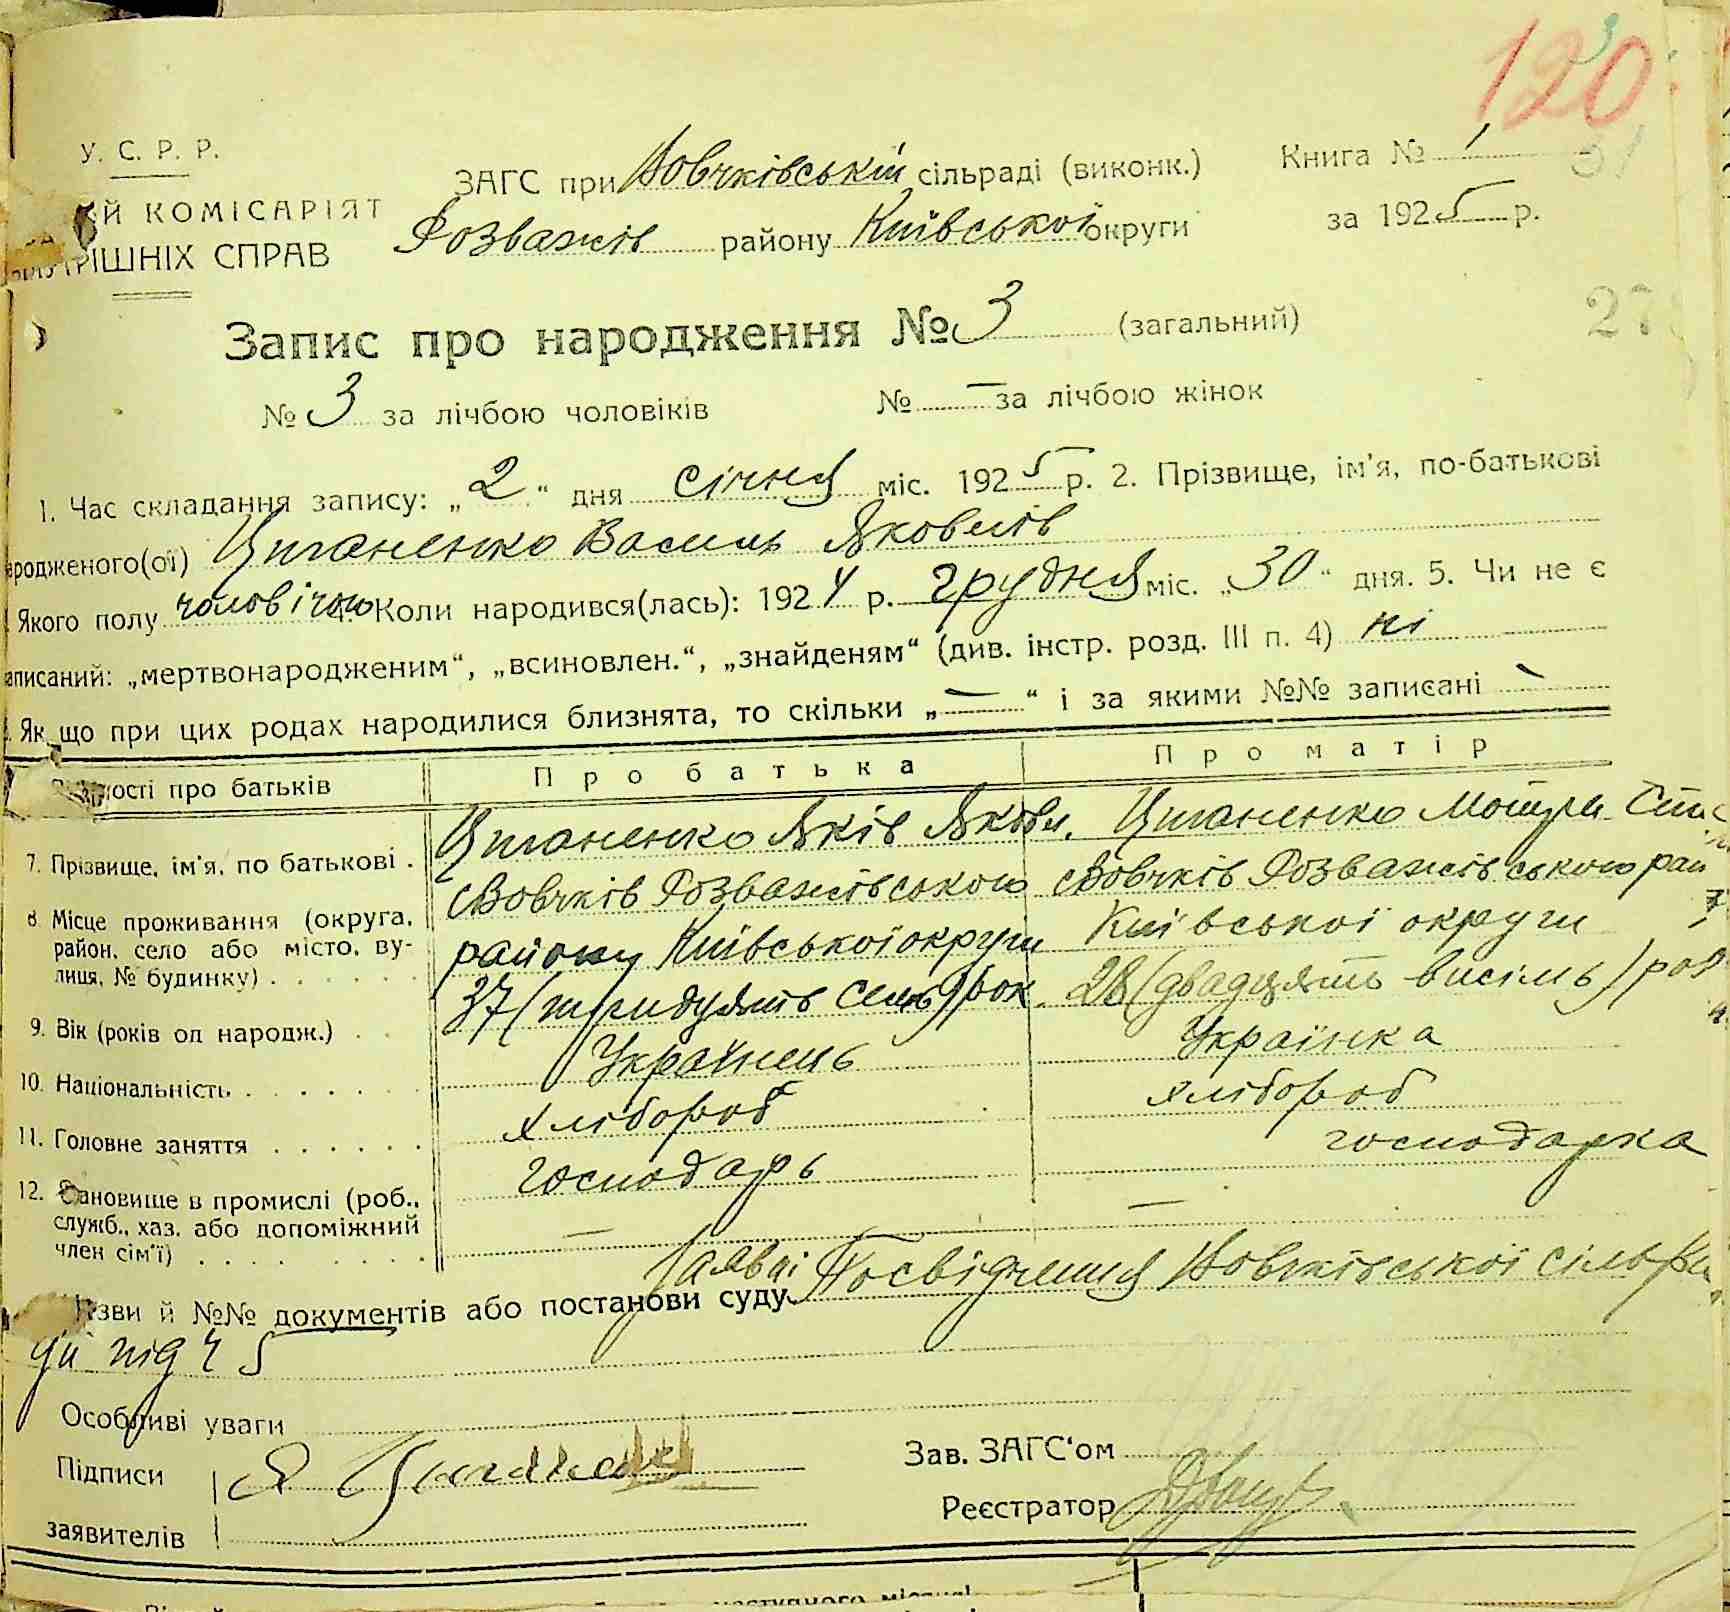 120
У. С. Р. Р.
ЗАГС при Вовчківській сільраді (виконк.)
Книга № 1
31
й КОМІСАРІЯТ
Розважів району Київської округи
за 1925 р.
РІШНІХ СПРАВ
Запис про народження № 3 (загальний)
27
№ 3 за лічбою чоловіків № — за лічбою жінок
1. Час складання запису: „2“ дня січня міс. 1925 р. 2. Прізвище, ім'я, по-батькові
родженого(ої) Циганенко Василь Яковлів
Якого полу чоловічого 4. Коли народився(лась): 1924 р. грудня міс. „30“ дня. 5. Чи не є
аписаний: „мертвонародженим“, „всиновлен.“, „знайденям“ (див. інстр. розд. III п. 4) ні
Як що при цих родах народилися близнята, то скільки „—“ і за якими №№ записані —
мости про батьків
Про батька
Про матір
7. Прізвище, ім'я, по батькові .
Циганенко Яків Яковл.
Циганенко Мотря
8 Місце проживання (округа,
район, село або місто, ву-
лиця, № будинку) . . . . . .
с Вовчків Розважівського
району Київської округи
с Вовчків Розважівського рай
Київської округи
9. Вік (років од народж.) . .
37 (тридцять сем) рок.
28 (двадцять висімь) рок
10. Національність . . . . . .
Українець
Українка
11. Головне заняття . . . . . .
хлібороб
хлібороб
12. Становище в промислі (роб.,
служб., хаз. або допоміжний
член сім'ї) . . . . . . . .
господарь
господарка
—
—
зви й №№ документів або постанови суду Посвідчення Вовчківської сільра
ди під ч 5
Особливі уваги
Підписи
заявителів
Я Циганенк
Зав. ЗАГС'ом
Реєстратор